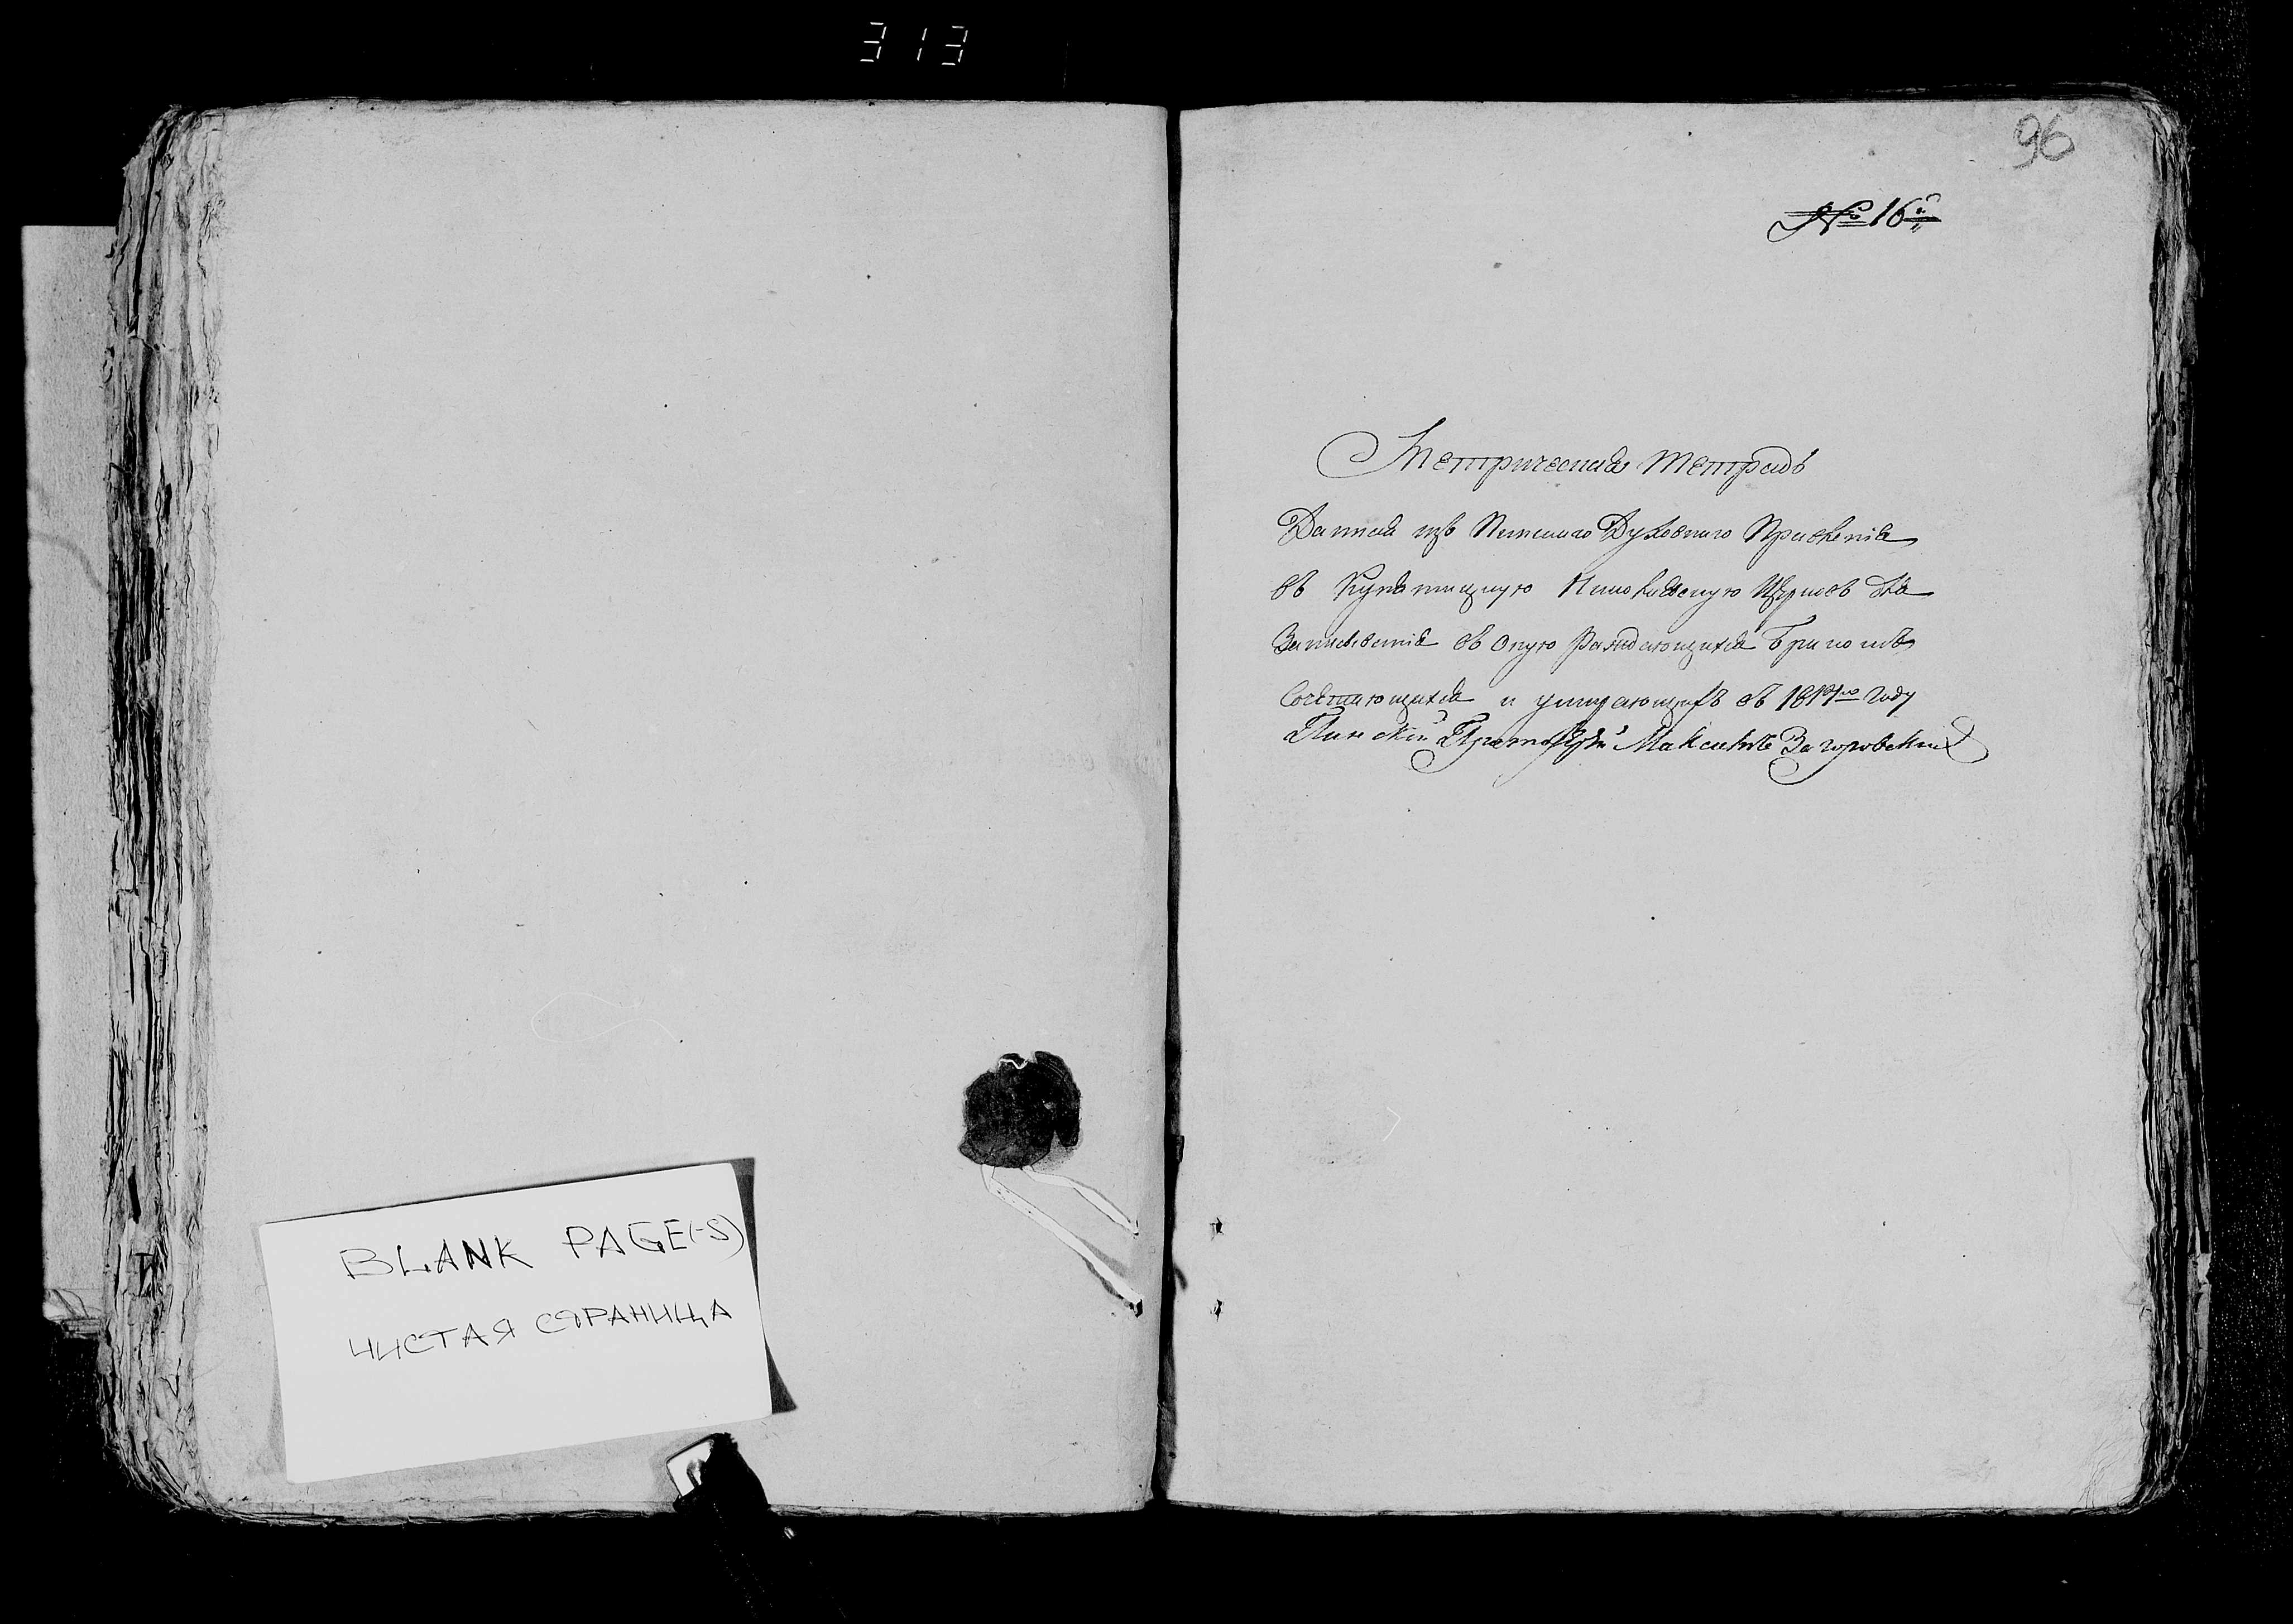 313
BLANK PAGE(-S)
ЧИСТАЯ СТРАНИЦА
96
№ 16й
Метрическая тетрадь
Данная изъ Пинскаго Духовнаго Правленія
въ Купятицкую Николаевскую Церковь для
Записыванія въ оную Раждающихся Бракомъ
Сочетающихся и умирающихъ въ году
Пинскій Протоіерей Максимъ Загоровский